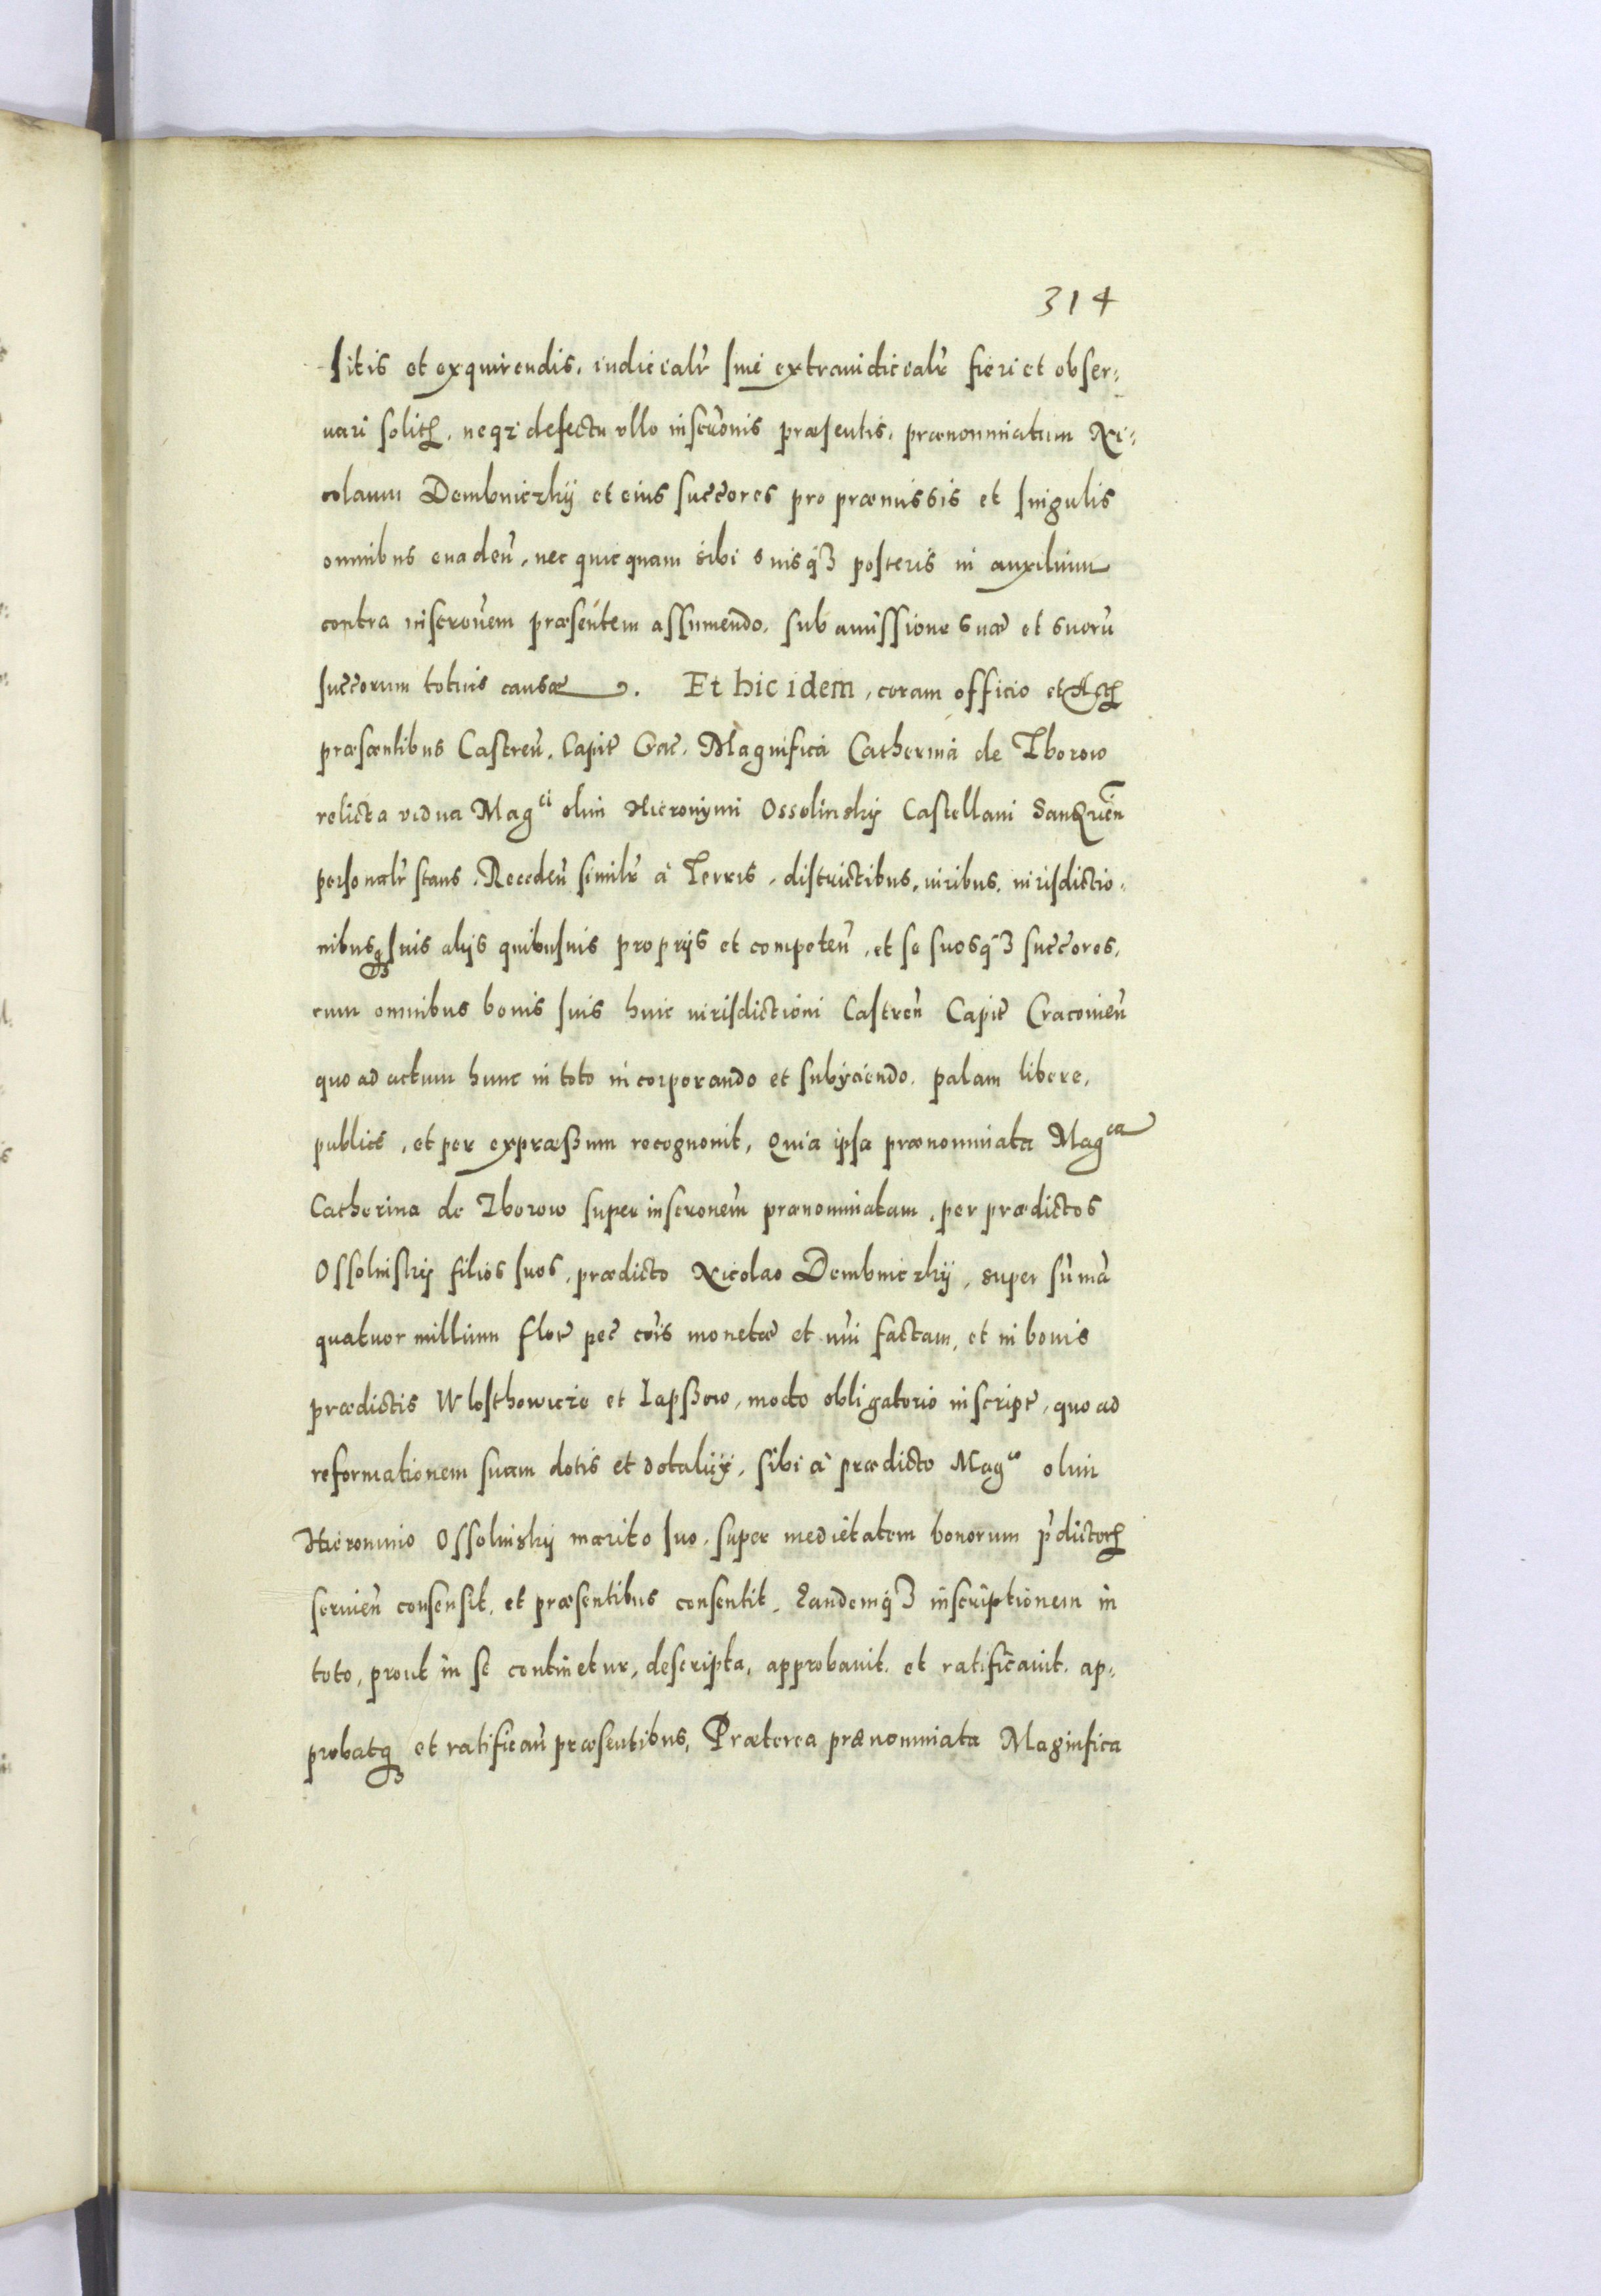 314
sitis et exquirendis, iudicialr̃ siue extraiudicialr̃ fieri et obser-
uari solitꝝ, neqꝫ defectu ullo inscr̃onis præsentis, prænominatum Ni-
colaum Dembniczkÿ et eius succ̃ores pro præmissis et singulis
omnibus euadeñ, nec quicquam sibi suisq̃ꝫ posteris in auxilium
contra inscr̃onem præsentem assumendo, sub amissione suæ et suorũ
succ̃orum totius causæ. Et hic idem, coram officio et Actꝝ
præsentibus Castreñ. Capit̃ Crac̃. Magnifica Catherina de Zborow
relicta vidua Magci olim Hieronÿmi Ossolinskÿ Castellani Sandzeñ
personalr̃ stans, Recedeñ similr̃ à Terris, districtibus, iuribus, iurisdictio-
nibusqꝫ suis alÿs quibusuis proprÿs et competeñ, et se suosq̃ꝫ succ̃ores,
cum omnibus bonis suis huic iurisdictioni Castreñ Capit̃ Cracouieñ
quo ad actum hunc in toto incorporando et subÿciendo, palam libere,
publice, et per expræßum recognouit, Quia ipsa prænominata Magca
Catherina de Zborow super inscr̃onem prænominatam, per prædictos
Ossolinskÿ filios suos, prædicto Nicolao Dembniczkÿ, super sum̃a
quatuor millium flor̃ pec̃ cõis monetæ et nũi factam, et in bonis
prædictis Wlosthowicze et Iapßow, modo obligatorio inscript̃, quo ad
reformationem suam dotis et dotalicÿ, sibi à prædicto Magco olim
Hieronimo Ossolinskÿ marito suo, super medietatem bonorum p̃dictorꝝ
seruieñ consensit, et præsentibus consentit. Eandemq̃ꝫ inscriptionem in
toto, prout in se continetur, descripta, approbauit, et ratificauit, ap-
probatqꝫ et ratificauit præsentibus, Præterea prænominata Magnifica